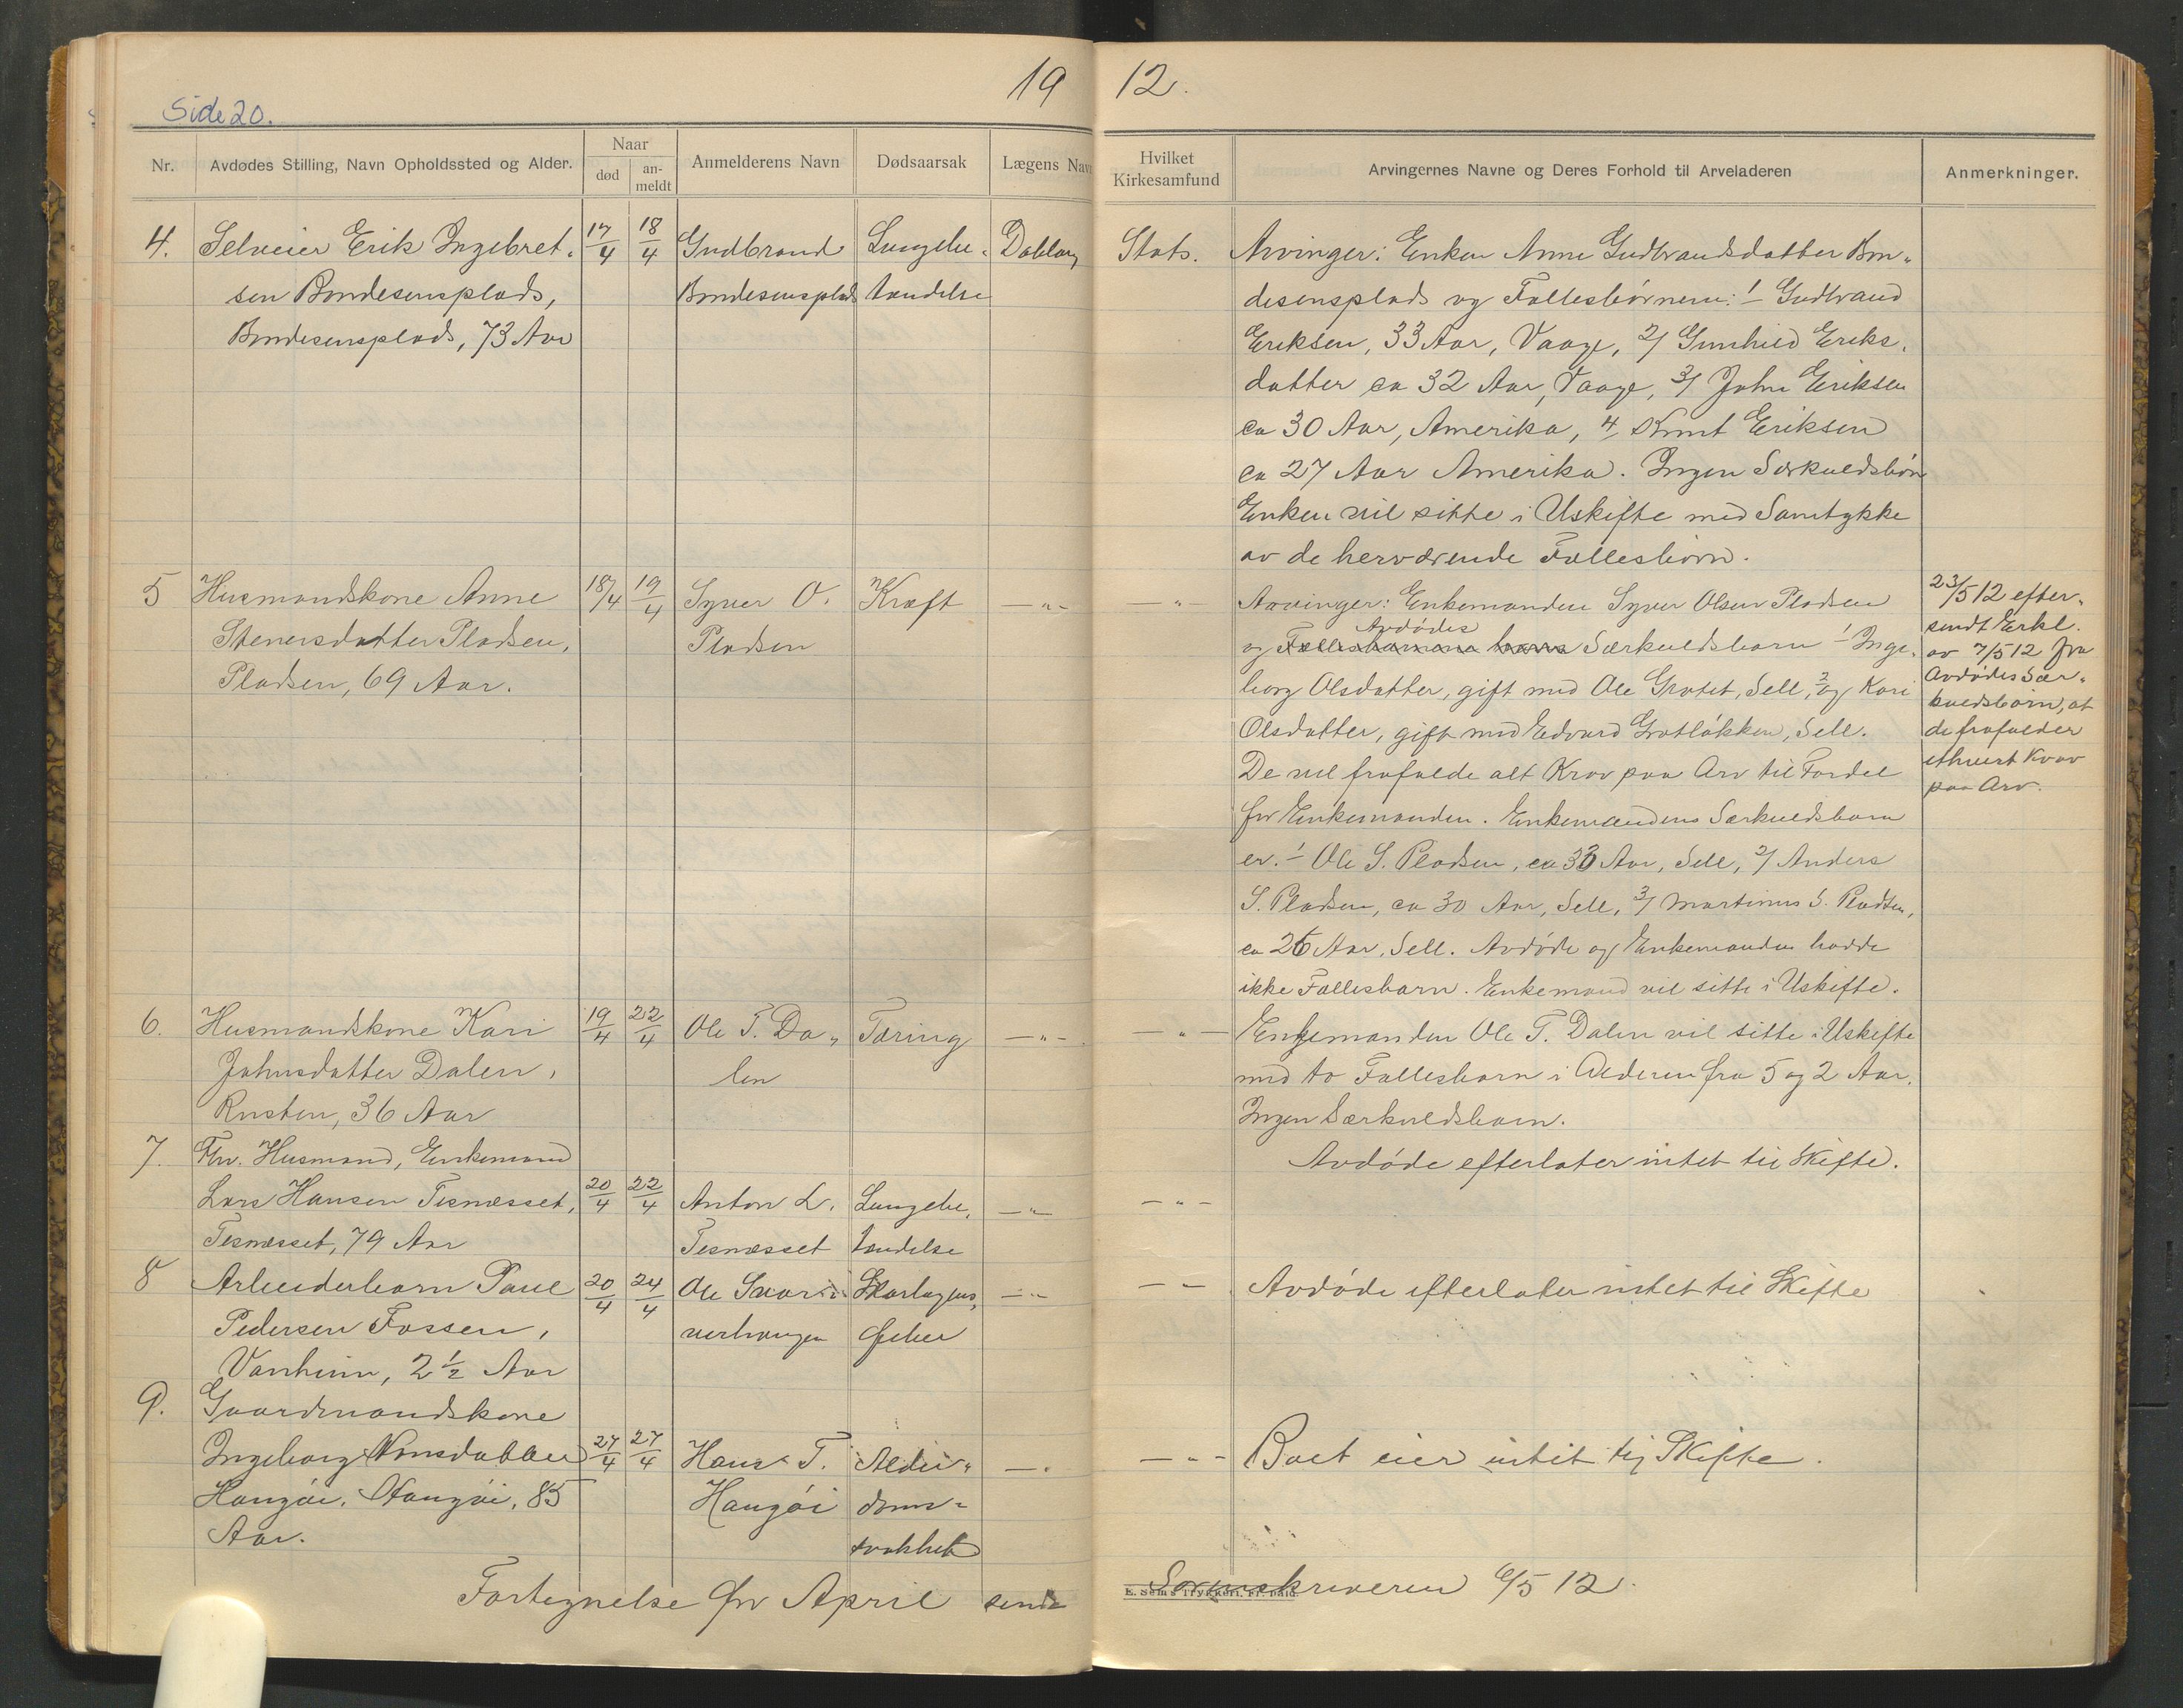 19 12.
Side 20.
Nr.
Avdødes Stilling, Navn Opholdssted og Alder.
Naar
død
an-
meldt
Anmelderens Navn
Dødsaarsak
Lægens Navn
Hvilket
Kirkesamfund
Arvingernes Navne og Deres Forhold til Arveladeren
Anmerkninger.
4.
Selveier Erik Ingebret-
sen Bondesensplads,
Bondesensplads, 73 Aar
17/4
18/4
Gudbrand
Bondesensplads
Lungebe-
tændelse
Stats.
Arvinger: Enken Anne Gudbrandsdatter Bon-
desensplads og Fællesbørnene: 1/ Gudbrand
Eriksen, 33 Aar, Vaage, 2/ Gunhild Eriks-
datter ca 32 Aar, Vaage, 3/ John Eriksen
ca 30 Aar, Amerika, 4/ Knut Eriksen
ca 27 Aar Amerika. Ingen Særkuldsbørn
Enken vil sitte i Uskifte med Samtykke
av de herværende Fællesbørn.
5
Husmandskone Anne
Stenersdatter Pladsen,
Pladsen, 69 Aar.
18/4
19/4
Syver O.
Pladsen
Kræft
—"—
—"—
Arvinger: Enkemanden Syver Olsen Pladsen
Avdødes
og Særkuldsbarn 1/ Inge-
borg Olsdatter, gift med Ole Grotet, Sell, 2/ og Kari
Olsdatter, gift med Edvard Grotløkken, Sell.
De vil frafalde alt Krav paa Arv til Fordel
for Enkemanden. Enkemandens Særkuldsbarn
er. 1/ Ole S. Pladsen, ca 33 Aar, Sell, 2/ Anders
S. Pladsen, ca 30 Aar, Sell, 3/ Martinus S. Pladsen,
ca 26 Aar, Sell. Avdøde og Enkemanden hadde
ikke Fællesbarn. Enkemand vil sitte i Uskifte.
23/5 12 efter-
sendt Erkl.
av 7/5 12 fra
Avdødes Sær-
kuldsbørn, at
de frafalder
ethvert Krav
paa Arv.
6.
Husmandskone Kari
Johnsdatter Dalen,
Rusten, 36 Aar
19/4
22/4
Ole T. Da-
len
Tæring
—"—
—"—
Enkemanden Ole T. Dalen vil sitte i Uskifte
med to Fællesbarn i Alderen fra 5 og 2 Aar.
Ingen Særkuldsbarn.
7.
Fhv. Husmand, Enkemand
Lars Hansen Tesnæsset,
Tesnæsset, 79 Aar
20/4
22/4
Anton L.
Tesnæsset
Lungebe-
tændelse
—"—
—"—
Avdøde efterlater intet til Skifte.
8
Arbeiderbarn Paul
Pedersen Fossen,
Vanheim, 2 1/2 Aar
20/4
24/4
Ole
Skarlagens-
feber
—"—
—"—
Avdøde efterlater intet til Skifte
9.
Gaardmandskone
Ingeborg
Haugøi, Haugøi, 85
Aar.
27/4
Hans T.
Haugøi
Alder-
doms-
svakhet
—"—
—"—
Boet eier intet til Skifte.
Fortegnelse for April sendt Sorenskriveren 6/5 12.